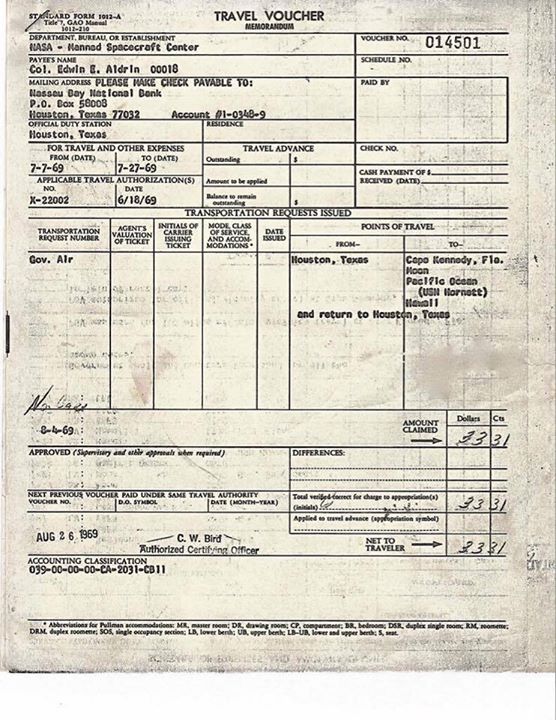 STANDARD FORM 1012-A
Title 7, GAO Manual
1012-210
TRAVEL VOUCHER
MEMORANDUM
DEPARTMENT, BUREAU, OR ESTABLISHMENT
NASA - Manned Spacecraft Center
VOUCHER NO. 014501
PAYEE'S NAME
Col. Edwin E. Aldrin 00018
SCHEDULE NO.
MAILING ADDRESS PLEASE MAKE CHECK PAYABLE TO:
Nassau Bay National Bank
P.O. Box 58008
Houston, Texas 77032 Account #1-0348-9
PAID BY
OFFICIAL DUTY STATION
Houston, Texas
RESIDENCE
FOR TRAVEL AND OTHER EXPENSES
FROM (DATE) TO (DATE)
7-7-69 7-27-69
TRAVEL ADVANCE
Outstanding $
Amount to be applied
Balance to remain
outstanding $
CHECK NO.
CASH PAYMENT OF $
RECEIVED (DATE)
APPLICABLE TRAVEL AUTHORIZATION(S)
NO. DATE
X-22002 6/18/69
TRANSPORTATION REQUESTS ISSUED
TRANSPORTATION
REQUEST NUMBER
AGENT'S
VALUATION
OF TICKET
INITIALS OF
CARRIER
ISSUING
TICKET
MODE, CLASS
OF SERVICE,
AND ACCOM-
MODATIONS*
DATE
ISSUED
POINTS OF TRAVEL
FROM- TO-
Gov. Air Houston, Texas Cape Kennedy, Fla.
Moon
Pacific Ocean
(USN Hornett)
Hawaii
and return to Houston, Texas
8-4-69
AMOUNT
CLAIMED
Dollars Cts
33 31
APPROVED (Supervisory and other approvals when required)
DIFFERENCES:
NEXT PREVIOUS VOUCHER PAID UNDER SAME TRAVEL AUTHORITY
VOUCHER NO. D.O. SYMBOL DATE (MONTH-YEAR)
Total verified correct for charge to appropriation(s)
(initials) 33 31
Applied to travel advance (appropriation symbol)
AUG 26 1969
C. W. Bird
Authorized Certifying Officer
NET TO
TRAVELER 33 31
ACCOUNTING CLASSIFICATION
039-00-00-00-CA-2031-CB11
* Abbreviations for Pullman accommodations: MR, master room; DR, drawing room; CP, compartment; BR, bedroom; DSR, duplex single room; RM, roomette;
DRM, duplex roomette; SOS, single occupancy section; LB, lower berth; UB, upper berth; LB-UB, lower and upper berth; S, seat.